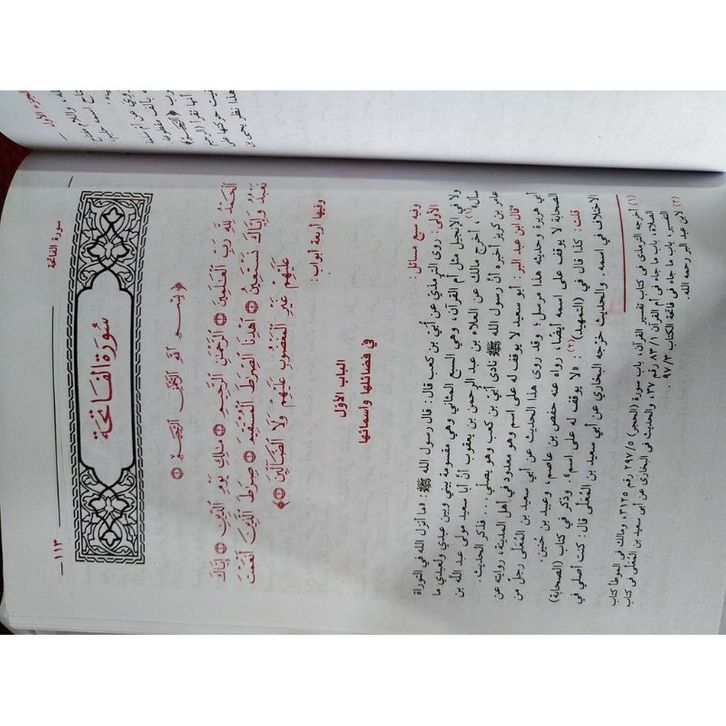 سورة الفاتحة
١١٣
سُورَةُ الفَاتِحَة
﴿بِسْمِ اللَّهِ الرَّحْمَٰنِ الرَّحِيمِ ۝
الْحَمْدُ لِلَّهِ رَبِّ الْعَالَمِينَ ۝ الرَّحْمَٰنِ الرَّحِيمِ ۝ مَالِكِ يَوْمِ الدِّينِ ۝ إِيَّاكَ
نَعْبُدُ وَإِيَّاكَ نَسْتَعِينُ ۝ اهْدِنَا الصِّرَاطَ الْمُسْتَقِيمَ ۝ صِرَاطَ الَّذِينَ أَنْعَمْتَ
عَلَيْهِمْ غَيْرِ الْمَغْضُوبِ عَلَيْهِمْ وَلَا الضَّالِّينَ ۝﴾
وفيها أربعة أبواب:
الباب الأوّل
في فضائلها وأسمائها
وفيه سبع مسائل:
الأولى: روى الترمذي عن أُبيّ بن كعب قال: قال رسول الله ﷺ: «ما أنزل الله في التوراة
ولا في الإنجيل مثل أم القرآن، وهي السبع المثاني وهي مقسومة بيني وبين عبدي ولعبدي ما
سأل»(١). أخرج مالك عن العلاء بن عبد الرحمن بن يعقوب أنّ أبا سعيد مولى عبد الله بن
عامر بن كريز أخبره أنّ رسول الله ﷺ نادى أُبيّ بن كعب وهو يصلّي... فذكر الحديث.
قال ابن عبد البر: أبو سعيد لا يوقف له على اسم وهو معدود في أهل المدينة، روايته عن
أبي هريرة وحديثه هذا مرسل؛ وقد روى هذا الحديث عن أبي سعيد بن المُعَلَّى رجل من
الصحابة لا يوقف على اسمه أيضًا، رواه عنه حفص بن عاصم، وعبيد بن حنين.
قلت: كذا قال في (التمهيد)(٢): «لا يوقف له على اسم». وذكر في كتاب (الصحابة)
الاختلاف في اسمه. والحديث خرّجه البخاري عن أبي سعيد بن المُعَلَّى قال: كنت أصلي في
(١) أخرجه الترمذي في كتاب تفسير القرآن، باب سورة (الحجر) ٢٩٧/٥ رقم ٣١٢٥، ومالك في الموطأ كتاب
الصلاة، باب ما جاء في أم القرآن ٨٣/١ رقم ٣٧، والحديث في البخاري عن أبي سعيد بن المُعلّى في كتاب
التفسير، باب ما جاء في فاتحة الكتاب ٩٧/٣.
(٢) لابن عبد البر رحمه الله.